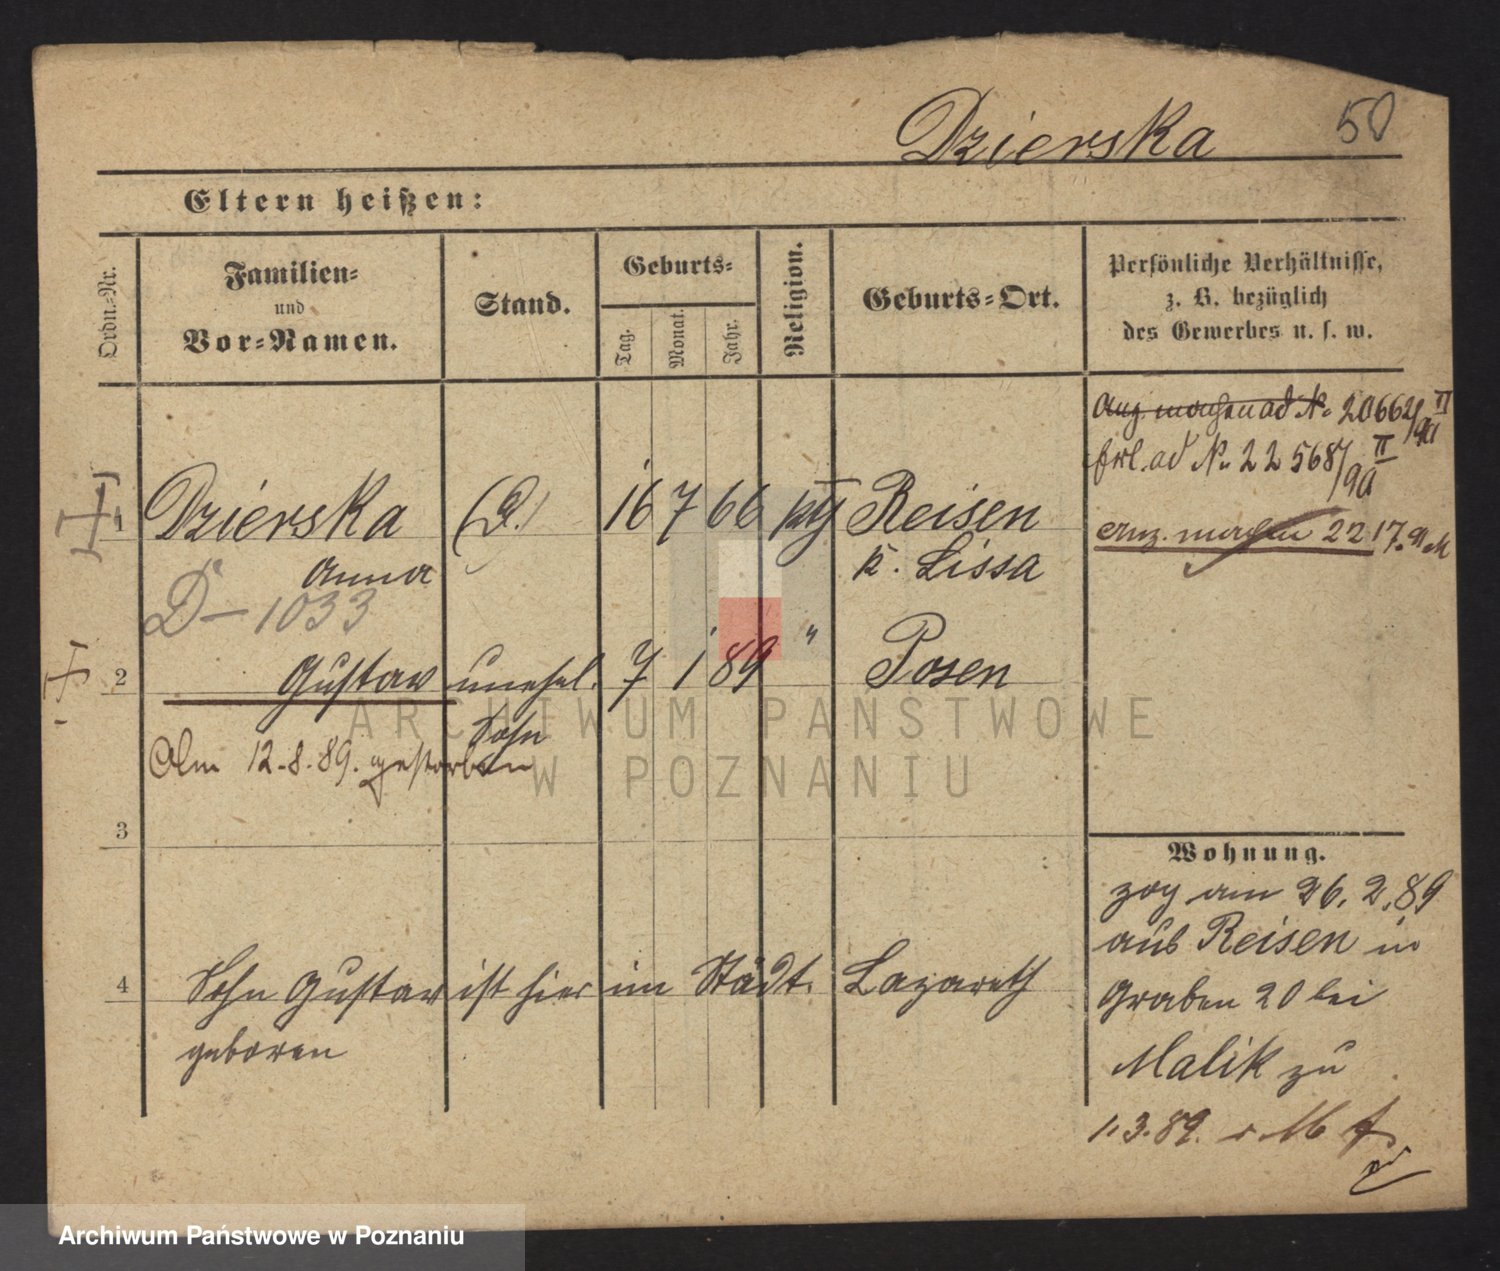 Dzierska 50
Eltern heißen:
Ordn.-Nr.
Familien-
und
Vor-Namen.
Stand.
Geburts-
Tag.
Monat.
Jahr.
Religion.
Geburts-Ort.
Persönliche Verhältnisse,
z. B. bezüglich
des Gewerbes u. s. w.
ad N. 20662/90 II
ad N. 22568/90 II
1 Dzierska (D.) 16 7 66 Reisen
Anna K. Lissa
2217.
D- 1033
2 Gustav unehel. 7 1 89 " Posen
Sohn
Am 12.8.89. gestorben
ARCHIWUM PAŃSTWOWE
W POZNANIU
3
Wohnung.
zog am 26.2.89
aus Reisen in
4 Sohn Gustav ist hier im Städt. Lazareth
Graben 20 bei
geboren
Malik zu
1.3.89.
Archiwum Państwowe w Poznaniu